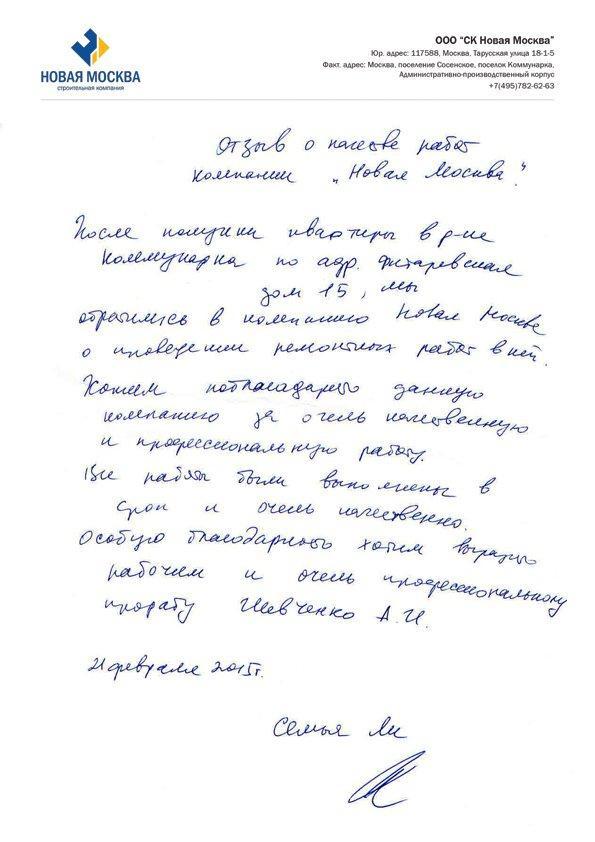 НОВАЯ МОСКВА
строительная компания
ООО “СК Новая Москва”
Юр. адрес: 117588, Москва, Тарусская улица 18-1-5
Факт. адрес: Москва, поселение Сосенское, поселок Коммунарка,
Административно-производственный корпус
+7(495)782-62-63
Отзыв о качестве работ
компании „Новая Москва".
После покупки квартиры в р-не
Коммунарка по адр. Фитаревская
дом 15, мы
обратились в компанию Новая Москва
о проведении ремонтных работ в ней.
Хотим поблагодарить данную
компанию за очень качественную
и профессиональную работу.
Все работы были выполнены в
срок и очень качественно.
Особую благодарность хотим выразить
рабочим и очень профессиональному
прорабу Шевченко А.И.
21 февраля 2015г.
Семья Ли